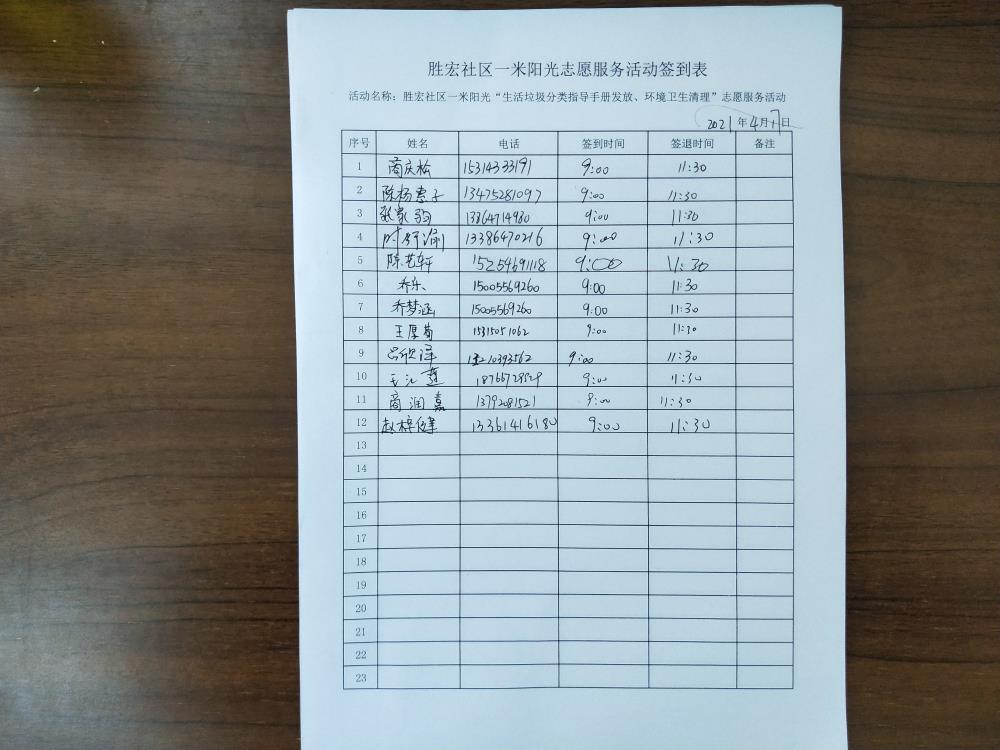 胜宏社区一米阳光志愿服务活动签到表
活动名称：胜宏社区一米阳光“生活垃圾分类指导手册发放、环境卫生清理”志愿服务活动
2021年4月17日
序号 姓名 电话 签到时间 签退时间 备注
1 蔺庆松 15314333191 9:00 11:30
2 陈杨惠子 13475281097 9:00 11:30
3 张家 13864714980 9:00 11:30
4 时舒涵 13386470216 9:00 11:30
5 陈艺轩 15254691118 9:00 11:30
6 乔乐 15005569260 9:00 11:30
7 乔梦涵 15005569260 9:00 11:30
8 王厚 15315051062 9:00 11:30
9 吕欣泽 9:00 11:30
10 9:00 11:30
11 商润嘉 9:00 11:30
12 赵梓健 13361416180 9:00 11:30
13
14
15
16
17
18
19
20
21
22
23